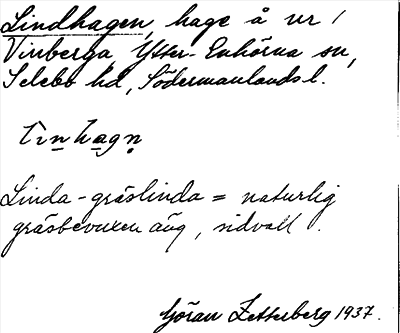 Lindhagen, hage å ur /
Vinberga, Ytter-Enhörna sn,
Selebo hd, Södermanlands l.
linhagn
Linda - gräslinda = naturlig
gräsbevuxen äng, sidvall.
Göran Zetterberg 1937.